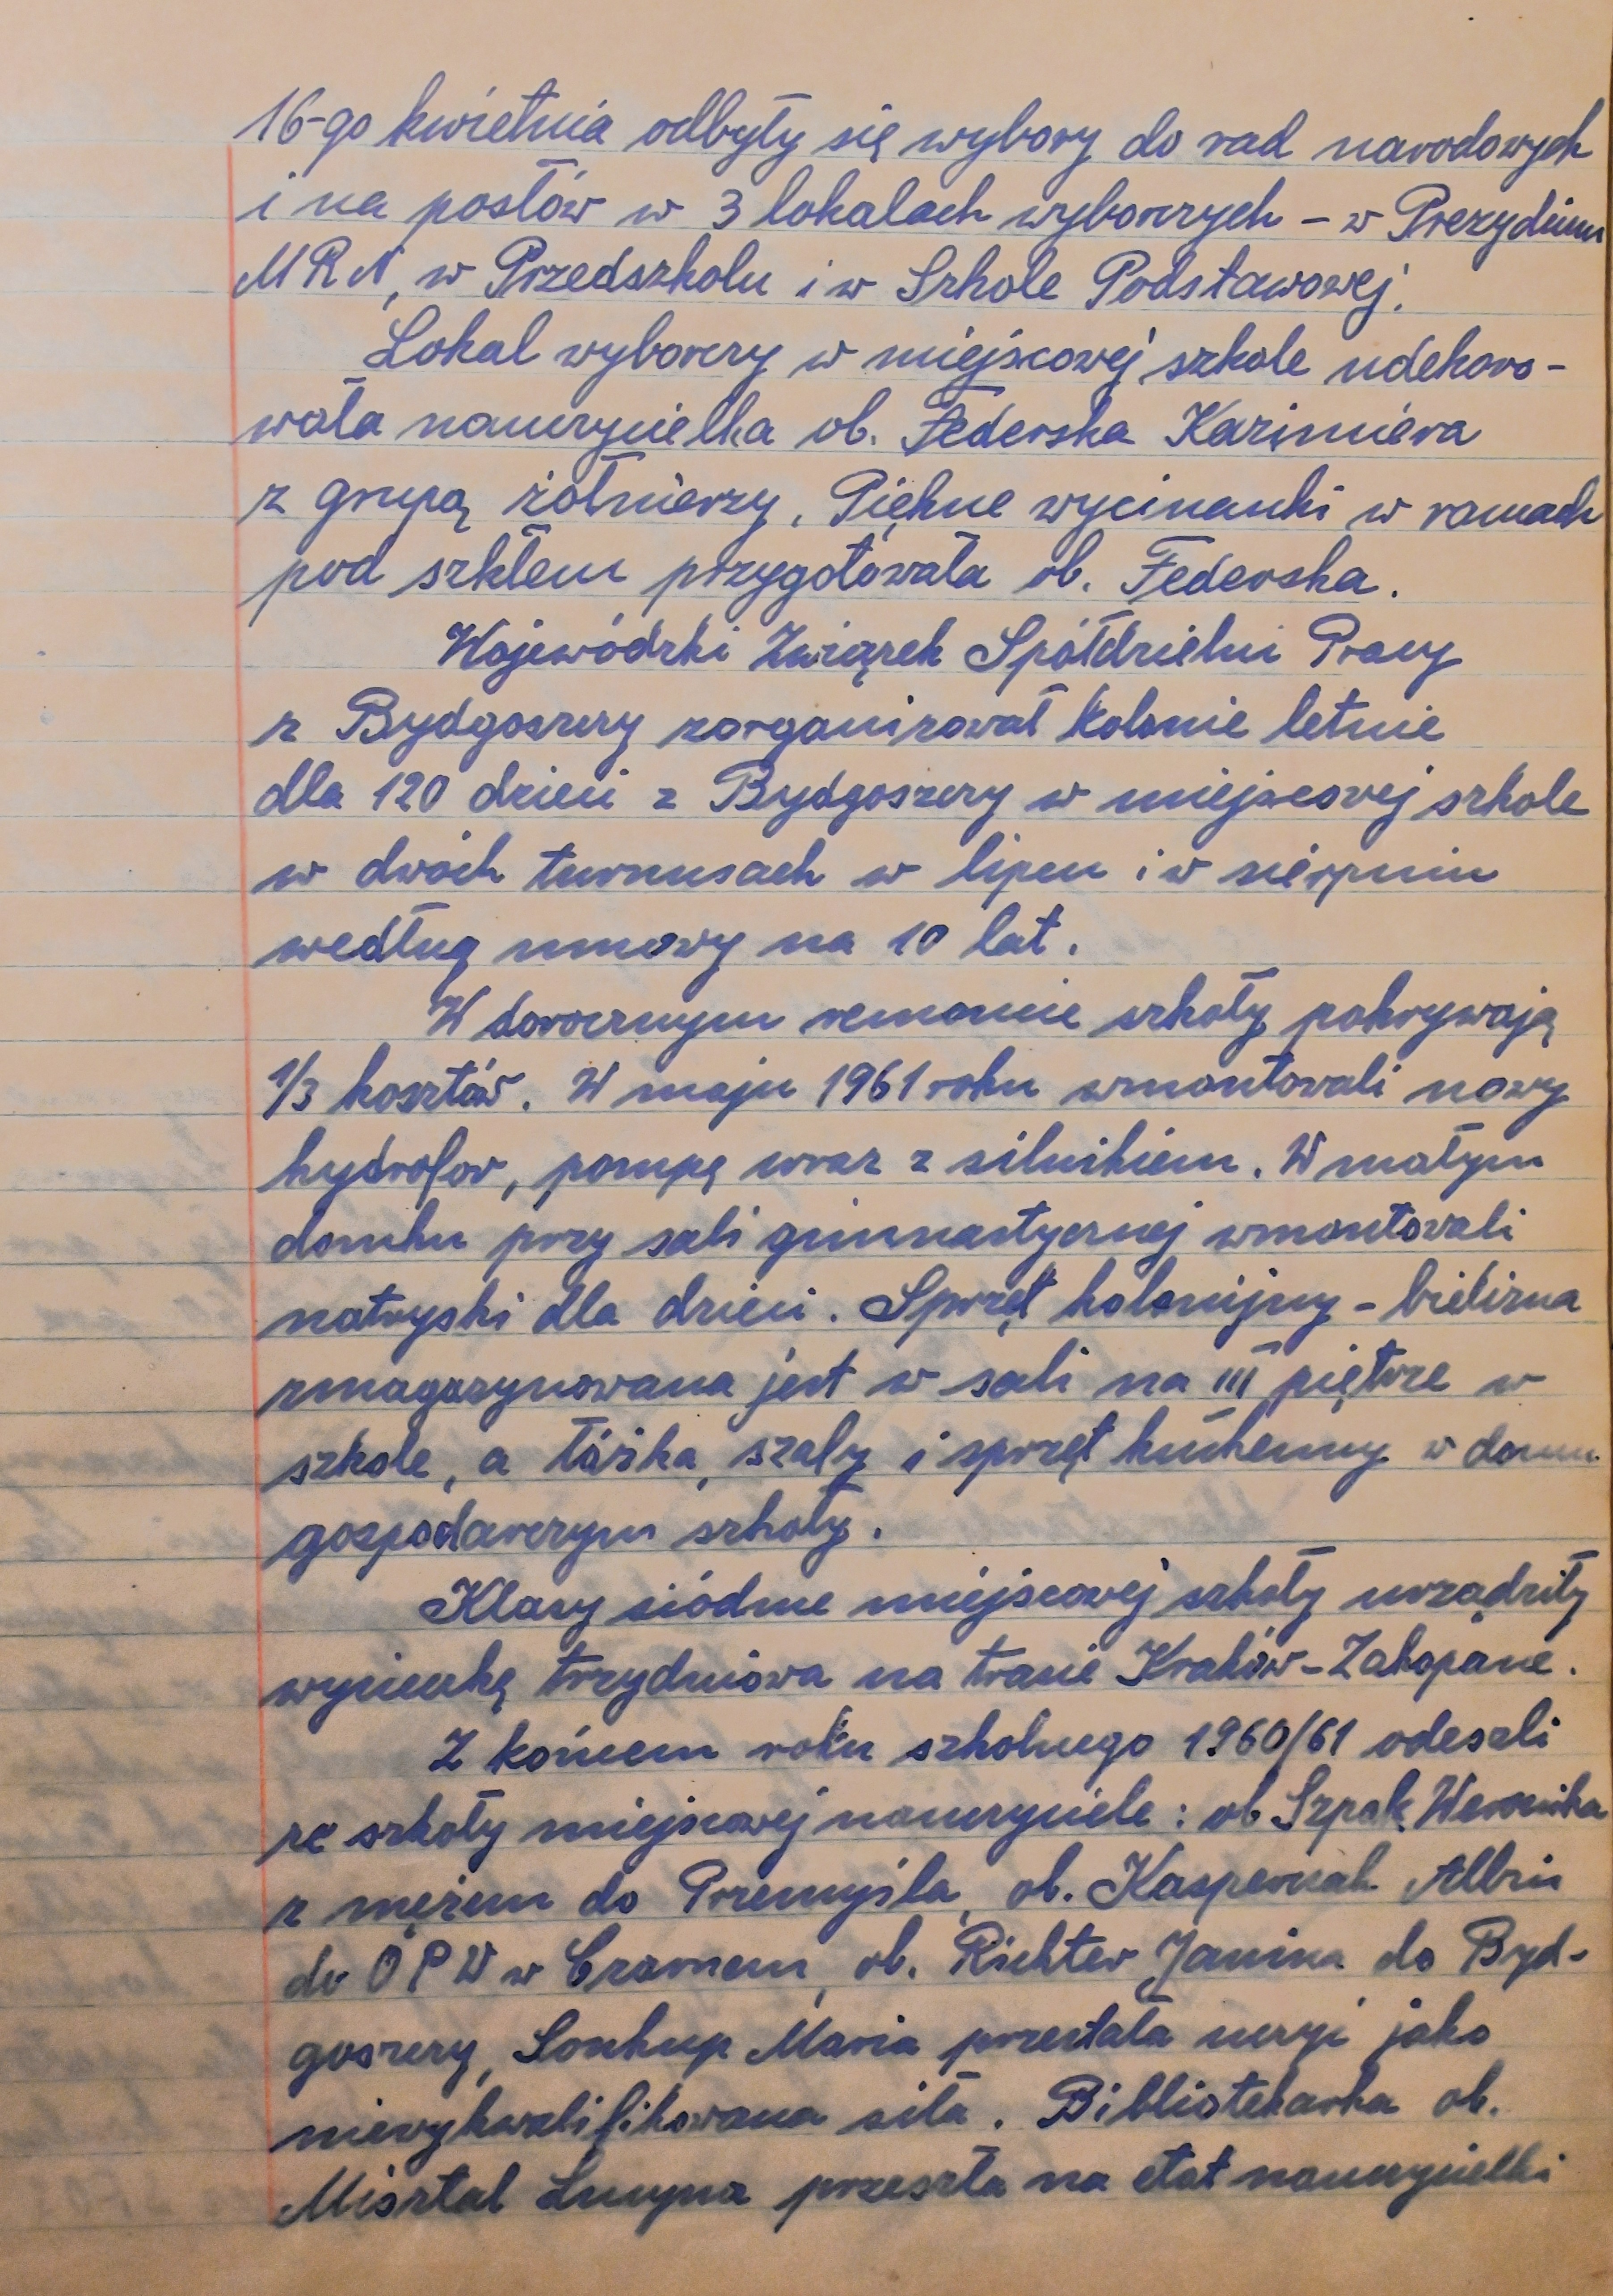 16-go kwietnia odbyły się wybory do rad narodowych
i na posłów w 3 lokalach wyborczych – w Prezydium
MRN, w Przedszkolu i w Szkole Podstawowej.
Lokal wyborczy w miejscowej szkole udekoro-
wała nauczycielka ob. Federska Kazimiera
z grupą żołnierzy. Piękne wycinanki w ramach
pod szkłem przygotowała ob. Federska.
Wojewódzki Związek Spółdzielni Pracy
z Bydgoszczy zorganizował kolonie letnie
dla 120 dzieci z Bydgoszczy w miejscowej szkole
w dwóch turnusach w lipcu i w sierpniu
według umowy na 10 lat.
W dorocznym remoncie szkoły pokrywają
1/3 kosztów. W maju 1961 roku wmontowali nowy
hydrofor, pompę wraz z silnikiem. W małym
domku przy sali gimnastycznej wmontowali
natryski dla dzieci. Sprzęt kolonijny – bielizna
zmagazynowana jest w sali na III piętrze w
szkole, a łóżka, szafy i sprzęt kuchenny w domu
gospodarczym szkoły.
Klasy siódme miejscowej szkoły urządziły
wycieczkę trzydniową na trasie Kraków-Zakopane.
Z końcem roku szkolnego 1960/61 odeszli
ze szkoły miejscowej nauczyciele: ob Szpak Weronika
z mężem do Przemyśla, ob. Kasperczak Albin
do OPW w Czarnem, ob. Richter Janina do Byd-
goszczy, Soukup Maria przestała uczyć jako
niewykwalifikowana siła. Bibliotekarka ob.
Misztal Lucyna przeszła na etat nauczycielki